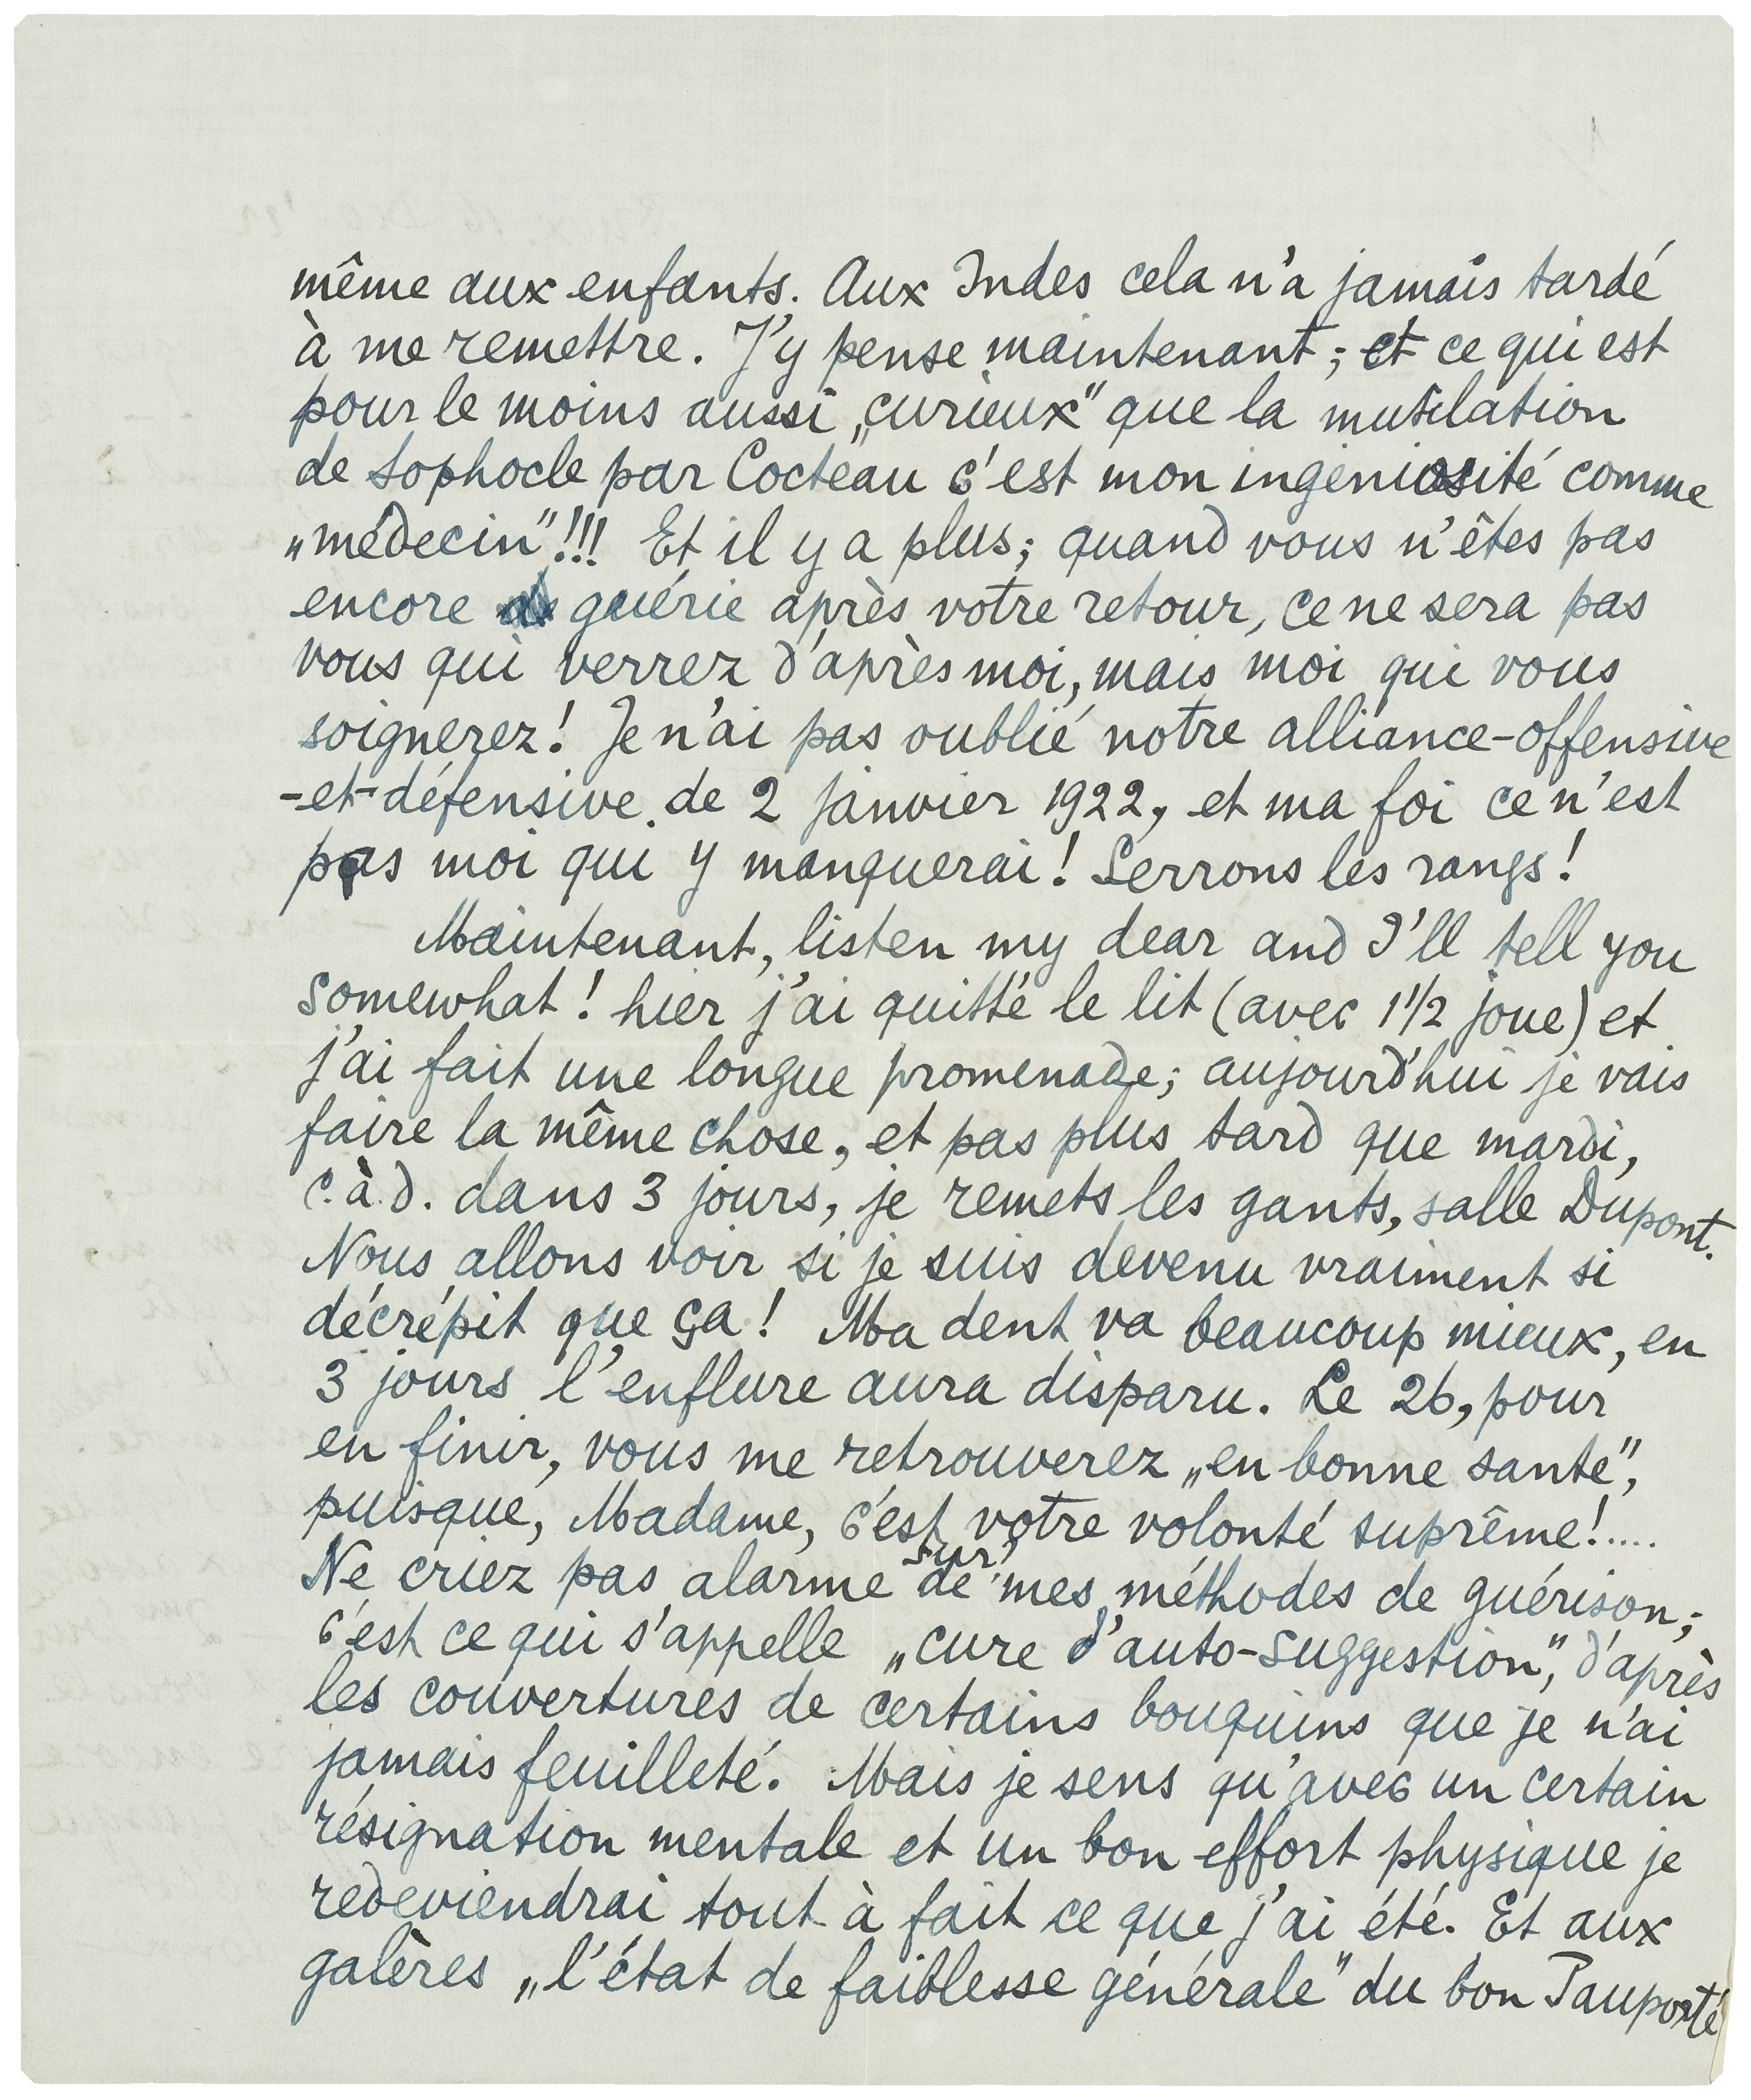 même aux enfants. Aux Indes cela n'a jamais tardé
à me remettre. J'y pense maintenant; et ce qui est
pour le moins aussi „curieux" que la mutilation
de Sophocle par Cocteau c'est mon ingéniosité comme
„médecin"!!! Et il y a plus; quand vous n'êtes pas
encore guérie après votre retour, ce ne sera pas
vous qui verrez d'après moi, mais moi qui vous
soignerez! Je n'ai pas oublié notre alliance-offensive
-et-défensive de 2 janvier 1922, et ma foi ce n'est
pas moi qui y manquerai! Serrons les rangs!
Maintenant, listen my dear and I'll tell you
somewhat! hier j'ai quitté le lit (avec 1 1/2 joue) et
j'ai fait une longue promenade; aujourd'hui je vais
faire la même chose, et pas plus tard que mardi,
c.à.d. dans 3 jours, je remets les gants, salle Dupont.
Nous allons voir si je suis devenu vraiment si
décrépit que ça! Ma dent va beaucoup mieux, en
3 jours l'enflure aura disparu. Le 26, pour
en finir, vous me retrouverez „en bonne santé",
puisque, Madame, c'est votre volonté suprême!.....
Ne criez pas alarme de sur mes méthodes de guérison;
c'est ce qui s'appelle „cure d'auto-suggestion", d'après
les couvertures de certains bouquins que je n'ai
jamais feuilleté. Mais je sens qu'avec un certain
résignation mentale et un bon effort physique je
redeviendrai tout à fait ce que j'ai été. Et aux
galères „l'état de faiblesse générale" du bon Pauporté